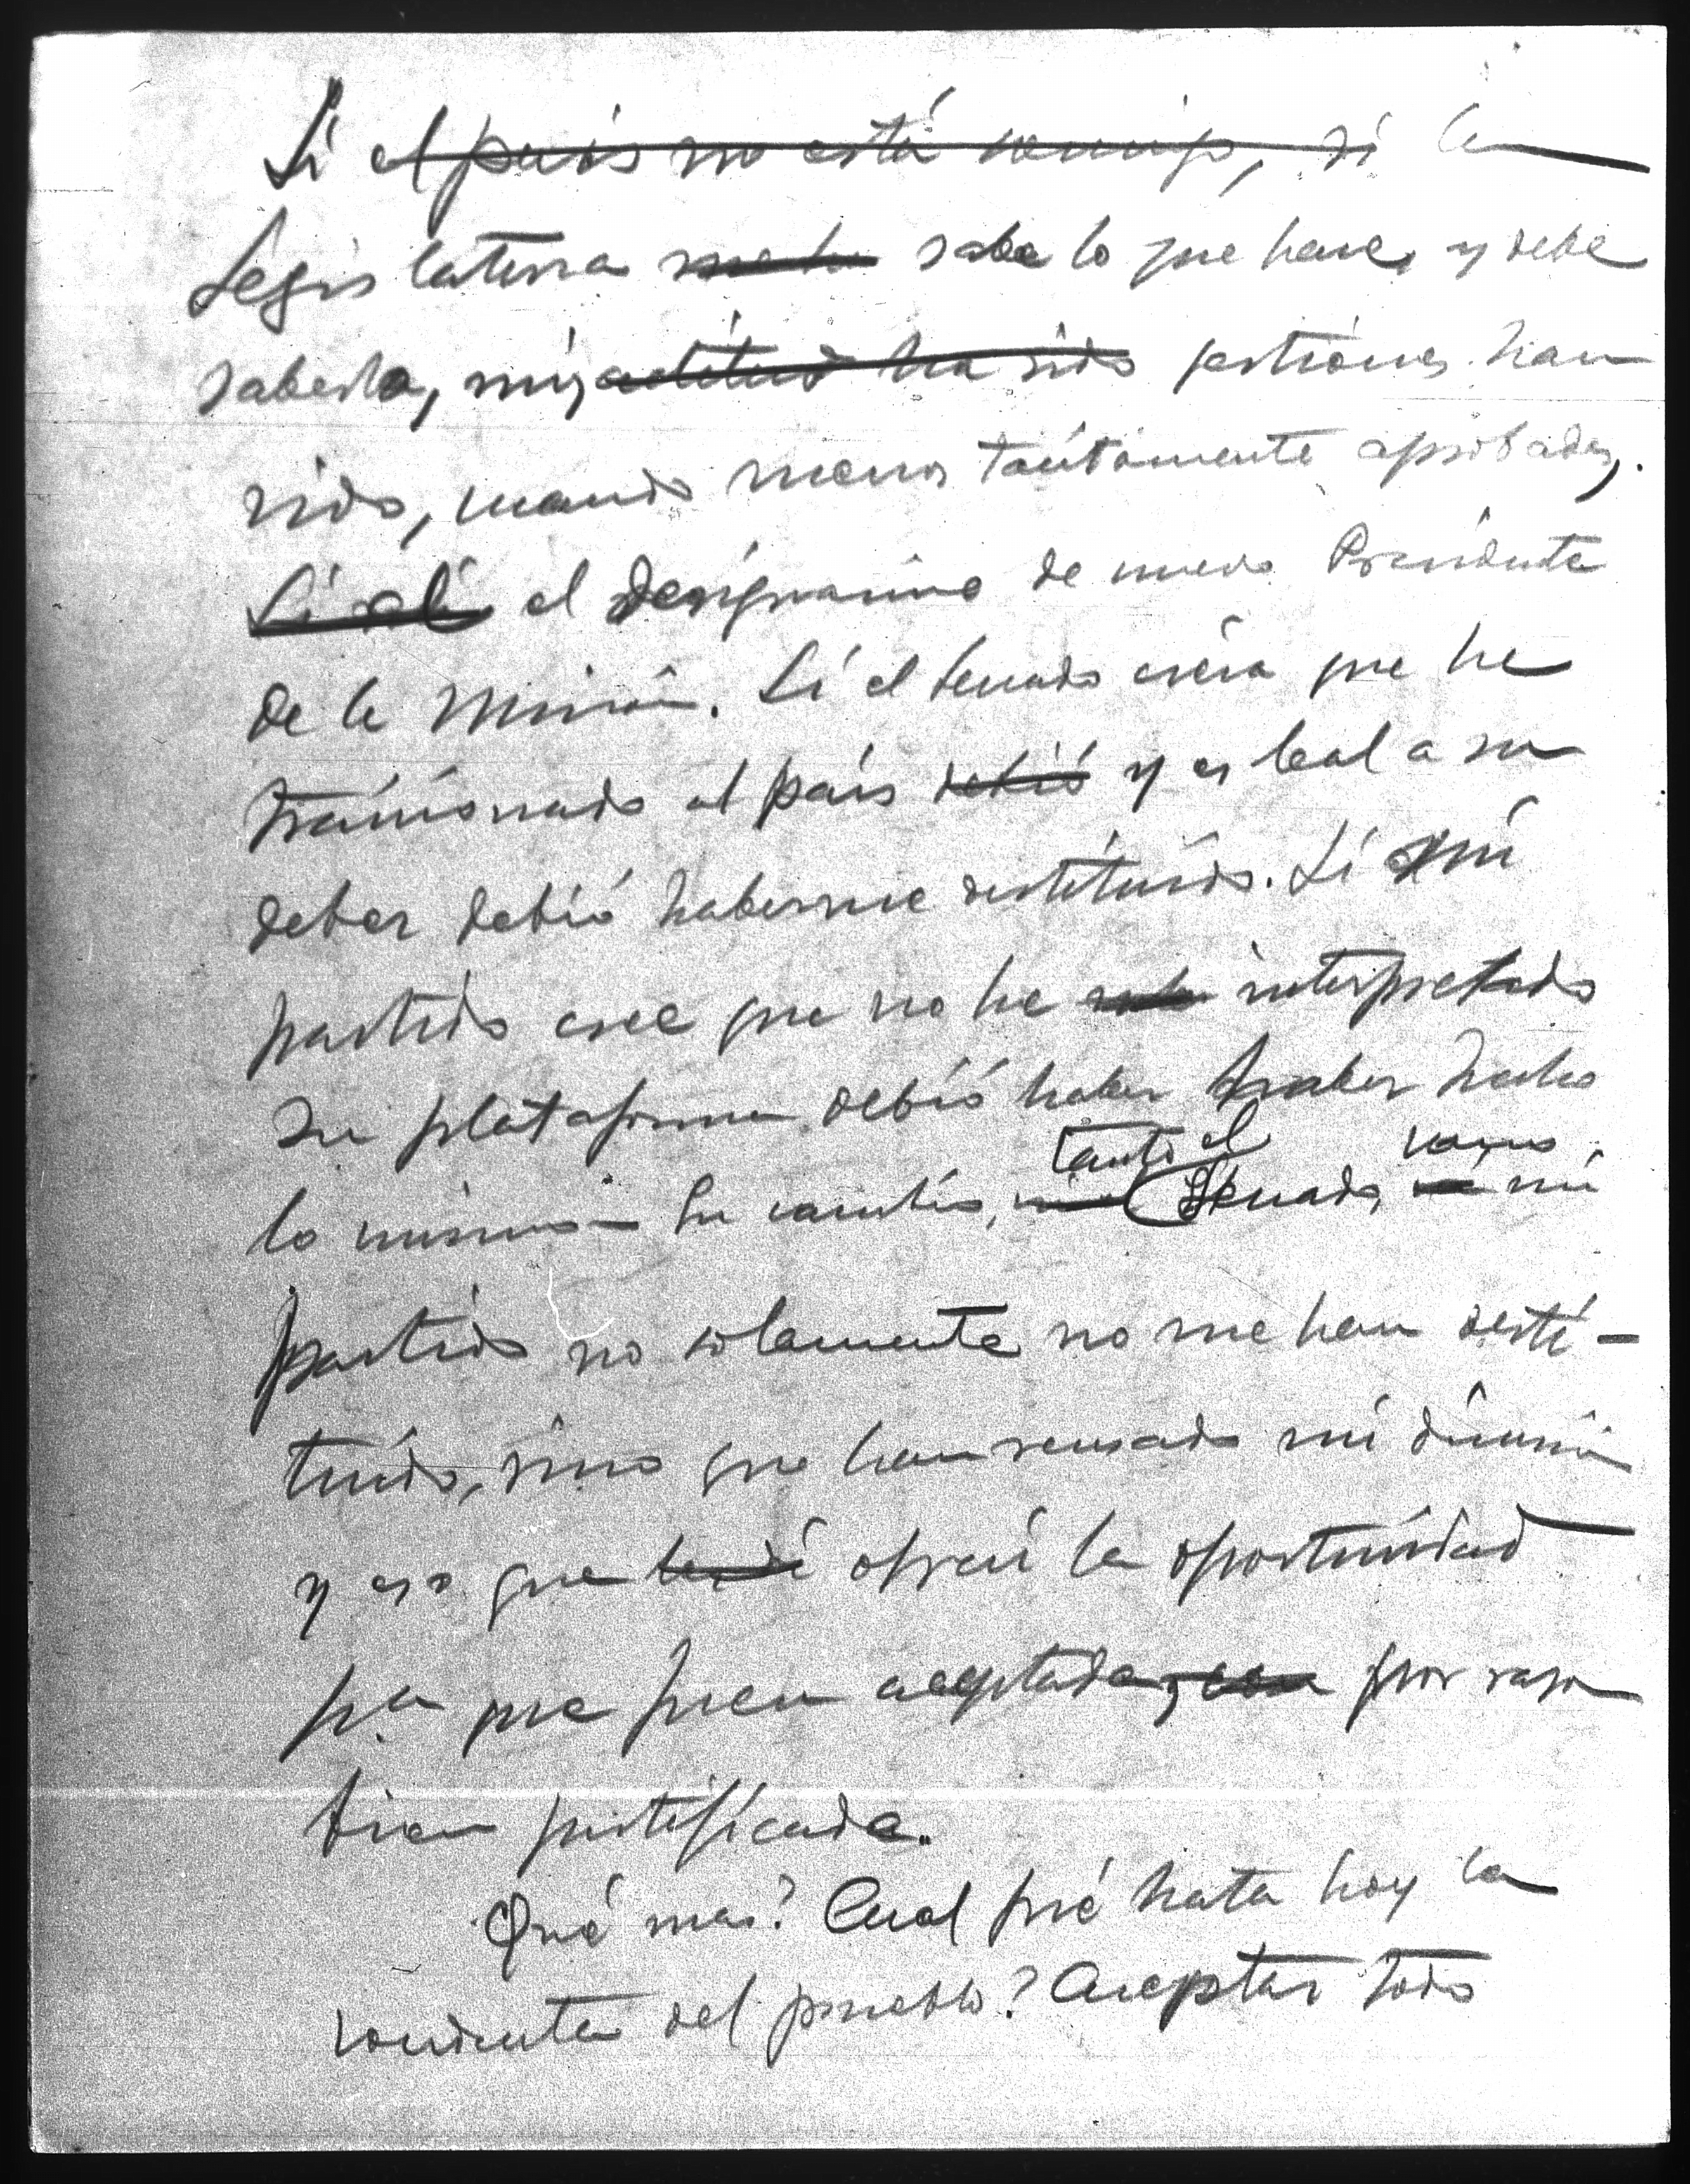 Si el país no está conmigo, si la
Legislatura sabe lo que hace, y debe
saberlo, mis actitud ha sido gestiones han
sido, cuando menos tacitamente aprobadas,
Si el el designarme de nuevo Presidente
de la Misión. Si el Senado creía que he
traicionado al país debió y es leal a su
deber debió haberme destituído. Si mi
partido cree que no he interpretado
su plataforma debió haber haber hecho
lo mismo. En cambio, tanto el Senado, como mi
partido no solamente no me han desti-
tuído, sino que han rehusado mi dimisión
y eso que ofrecí la oportunidad
pa que fuera aceptada, con por razon
bien justificada.
Qué mas? Cual fué hasta hoy la
conducta del pueblo? Aceptar todo